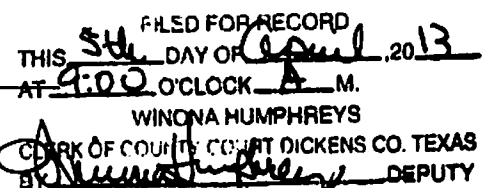 FILED FOR RECORD
THIS 5th DAY OF April, 2013
AT 9:00 O'CLOCK A M.
WINONA HUMPHREYS
CLERK OF COUNTY COURT DICKENS CO. TEXAS
BY Winona Humphreys DEPUTY